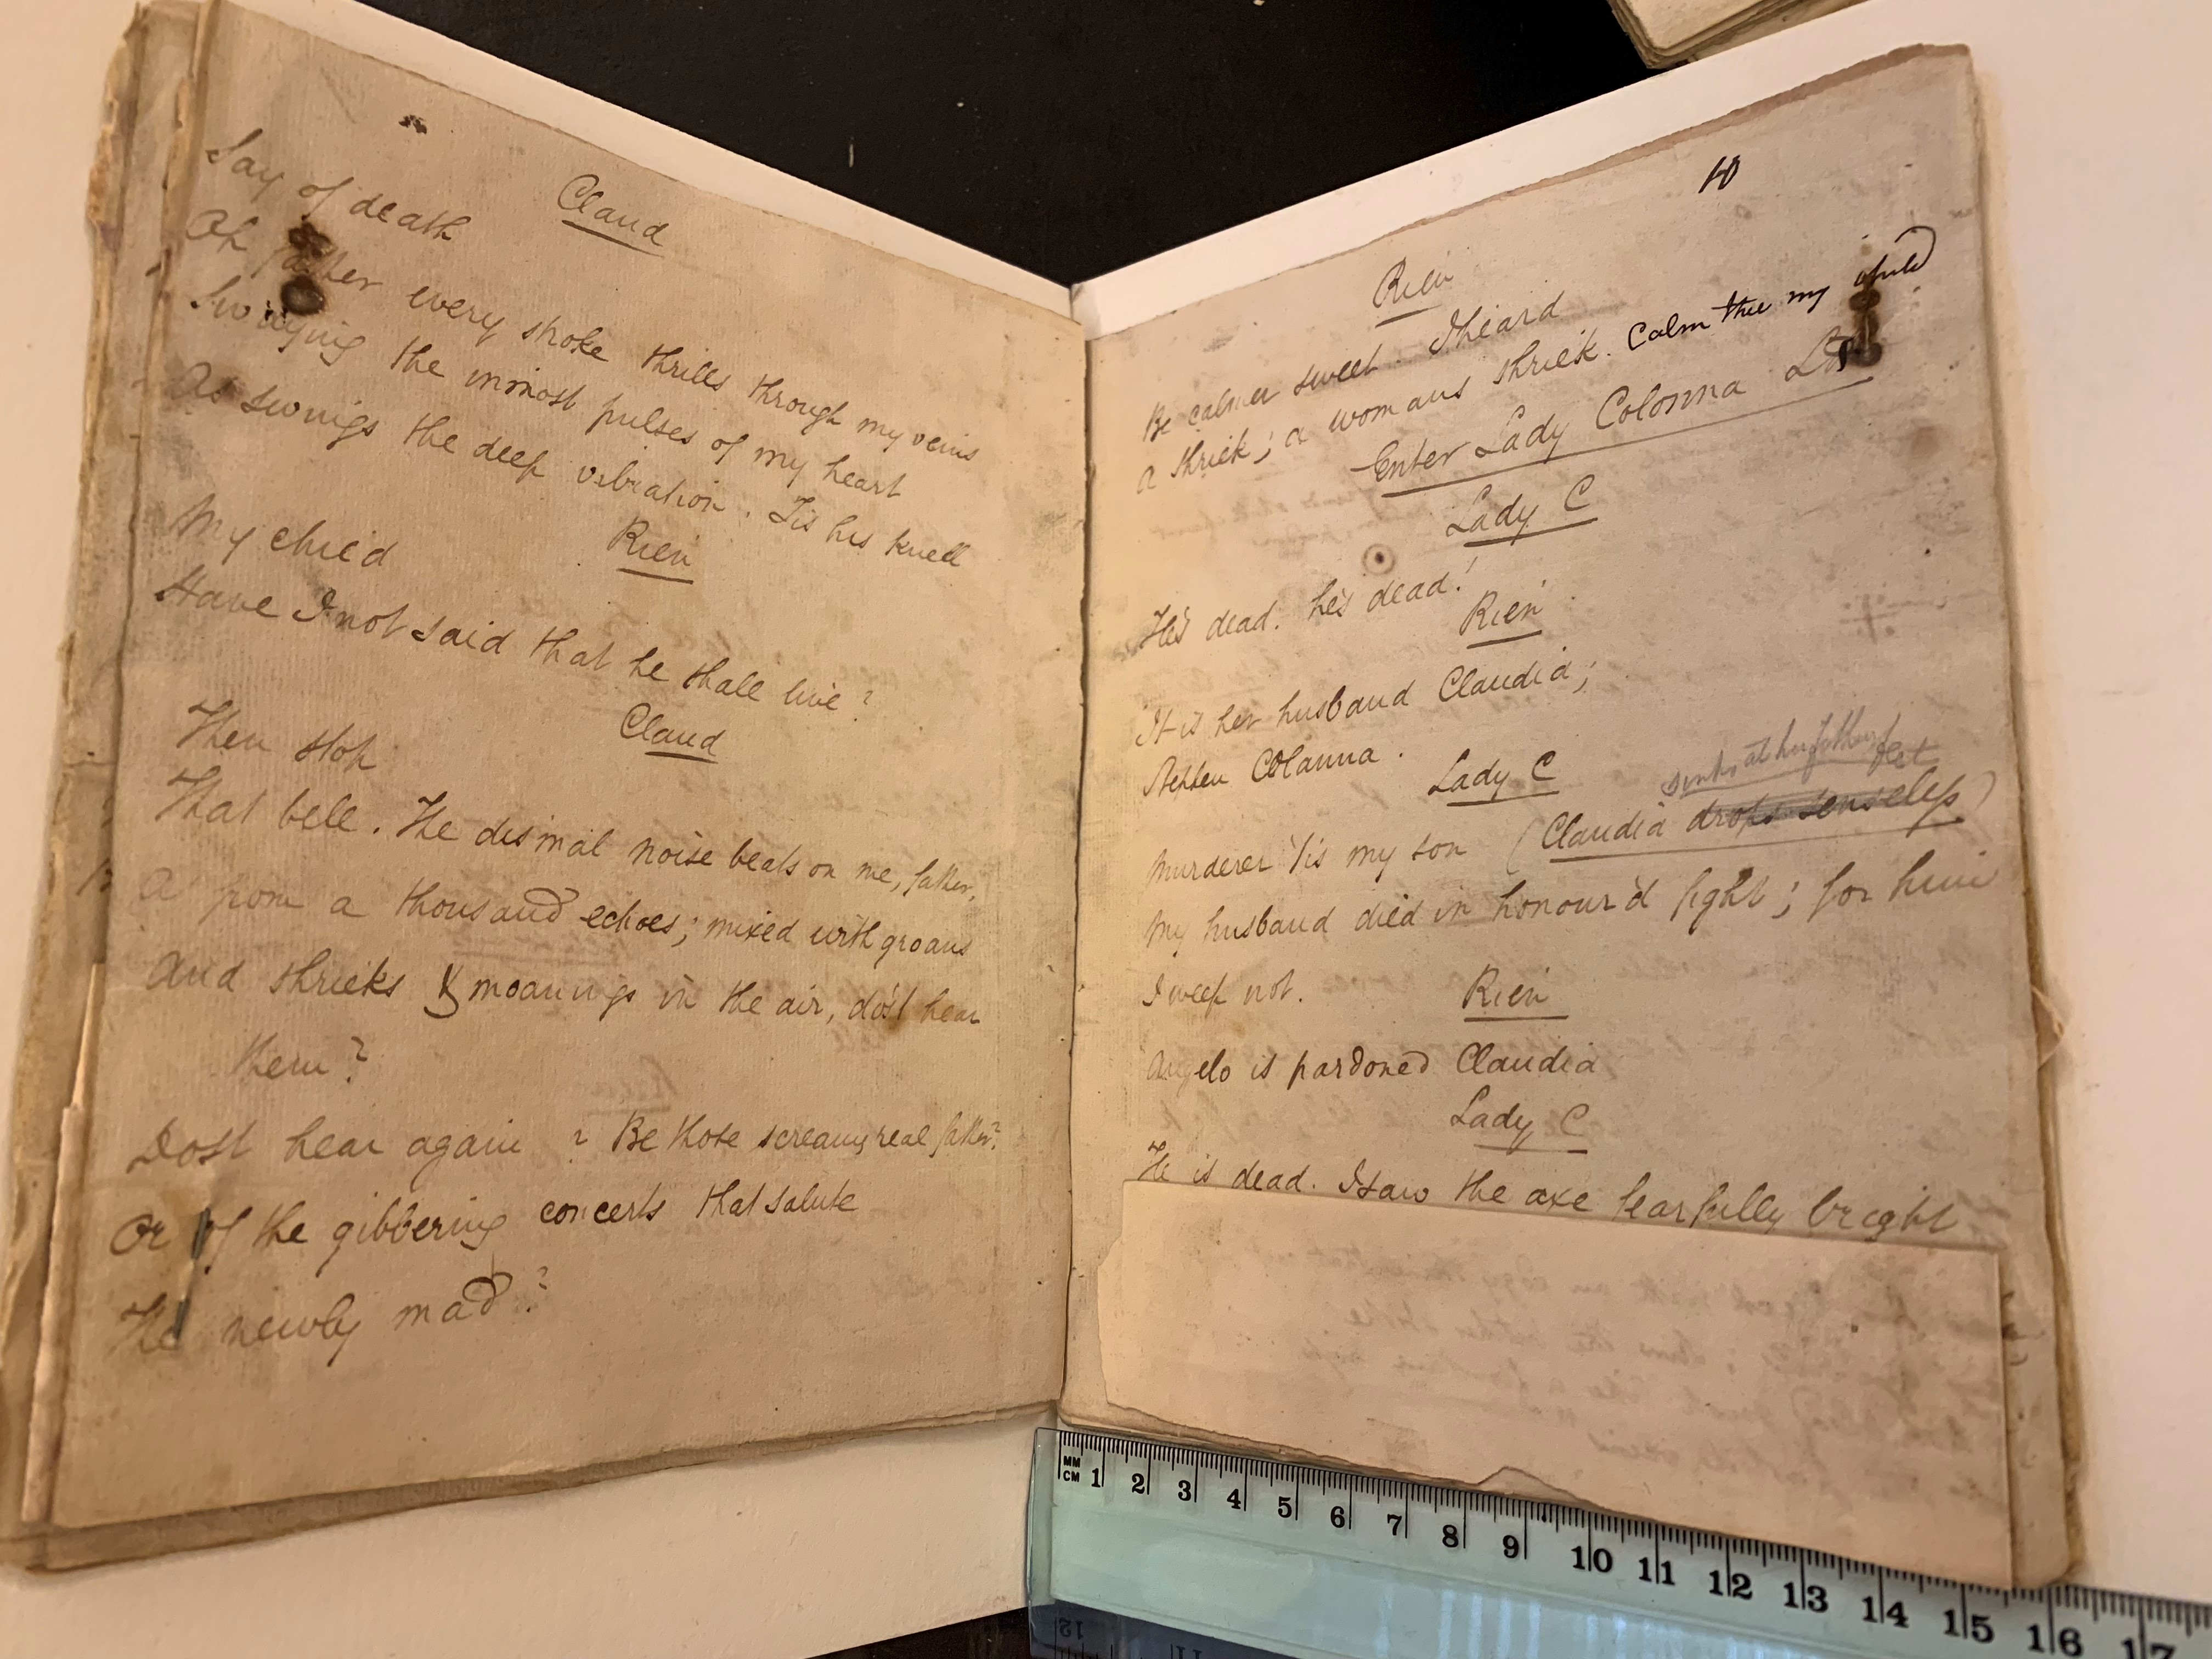 Claud
Say of death
Oh father every stroke thrills through my veins
Swaying the inmost pulses of my heart
As swings the deep vibration. Tis his knell
Rien
My child
Have I not said that he shall live?
Claud
Then stop
That bell. The dismal noise beats on me, father,
As from a thousand echoes; mixed with groans
And shrieks & moanings in the air, dost hear
them?
Dost hear again? Be those screams real father?
Or of the gibbering concerts that salute
The newly mad?
10
Rien
Be calmer sweet. I heard
A shriek; a womans shriek. Calm thee my child
Enter Lady Colonna
Lady C
He's dead. he's dead!
Rien
It is her husband Claudia;
Stephen Colanna.
Lady C
sinks at her fathers feet
Murderer 'tis my son (Claudia drops senseless)
My husband died in honour'd fight; for him
I weep not.
Rien
Angelo is pardoned Claudia
Lady C
He is dead. I saw the axe fearfully bright
MM
CM 1 2 3 4 5 6 7 8 9 10 11 12 13 14 15 16 17
12 11